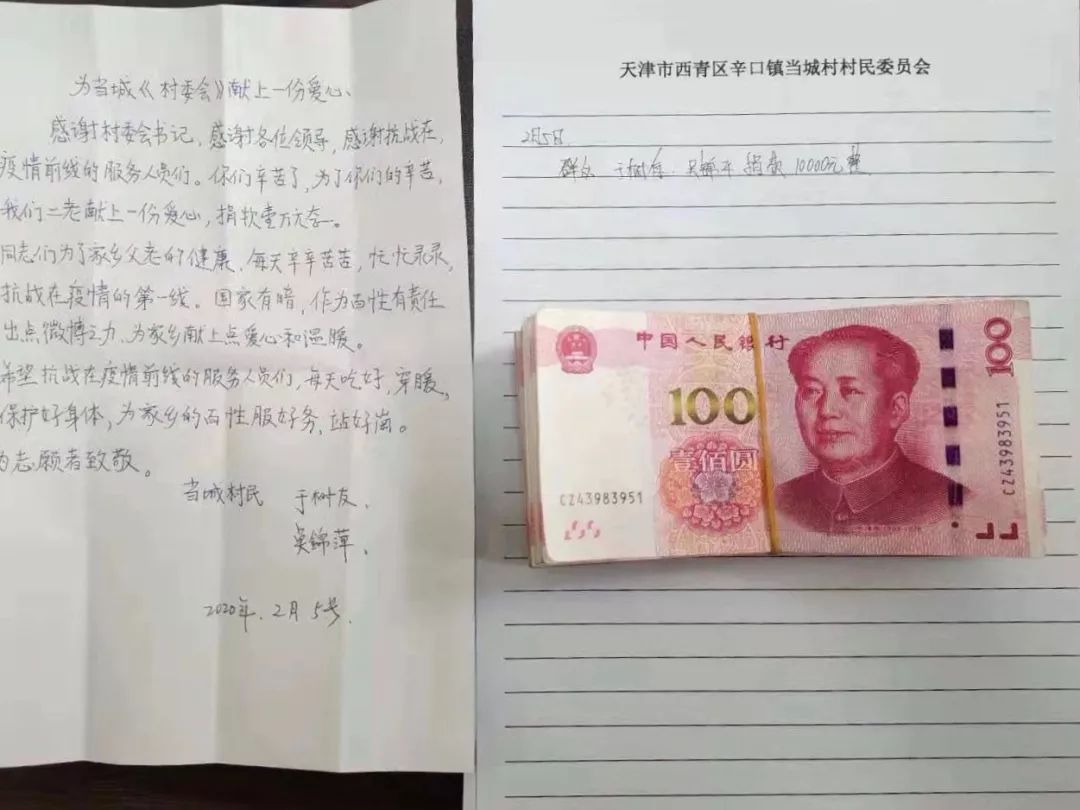 为当城《村委会》献上一份爱心、
感谢村委会书记，感谢各位领导，感谢抗战在，
疫情前线的服务人员们。你们辛苦了，为了你们的辛苦，
我们二老献上一份爱心，捐款壹万元
同志们为了家乡父老的健康、每天辛辛苦苦，忙忙录录，
抗战在疫情的第一线。国家有暗，作为百性有责任
出点微博之力、为家乡献上点爱心和温暖。
希望抗战在疫情前线的服务人员们，每天吃好，穿暖、
保护好身体，为家乡的百性服好务、站好岗。
为志愿者致敬。
当城村民 于树友、
吴錦萍、
2020年.2月5号.
天津市西青区辛口镇当城村村民委员会
2月5日
群众 于树 吴 捐款10000元整
中国人民银行
100
壹佰圆
CZ43983951
100
CZ43983951